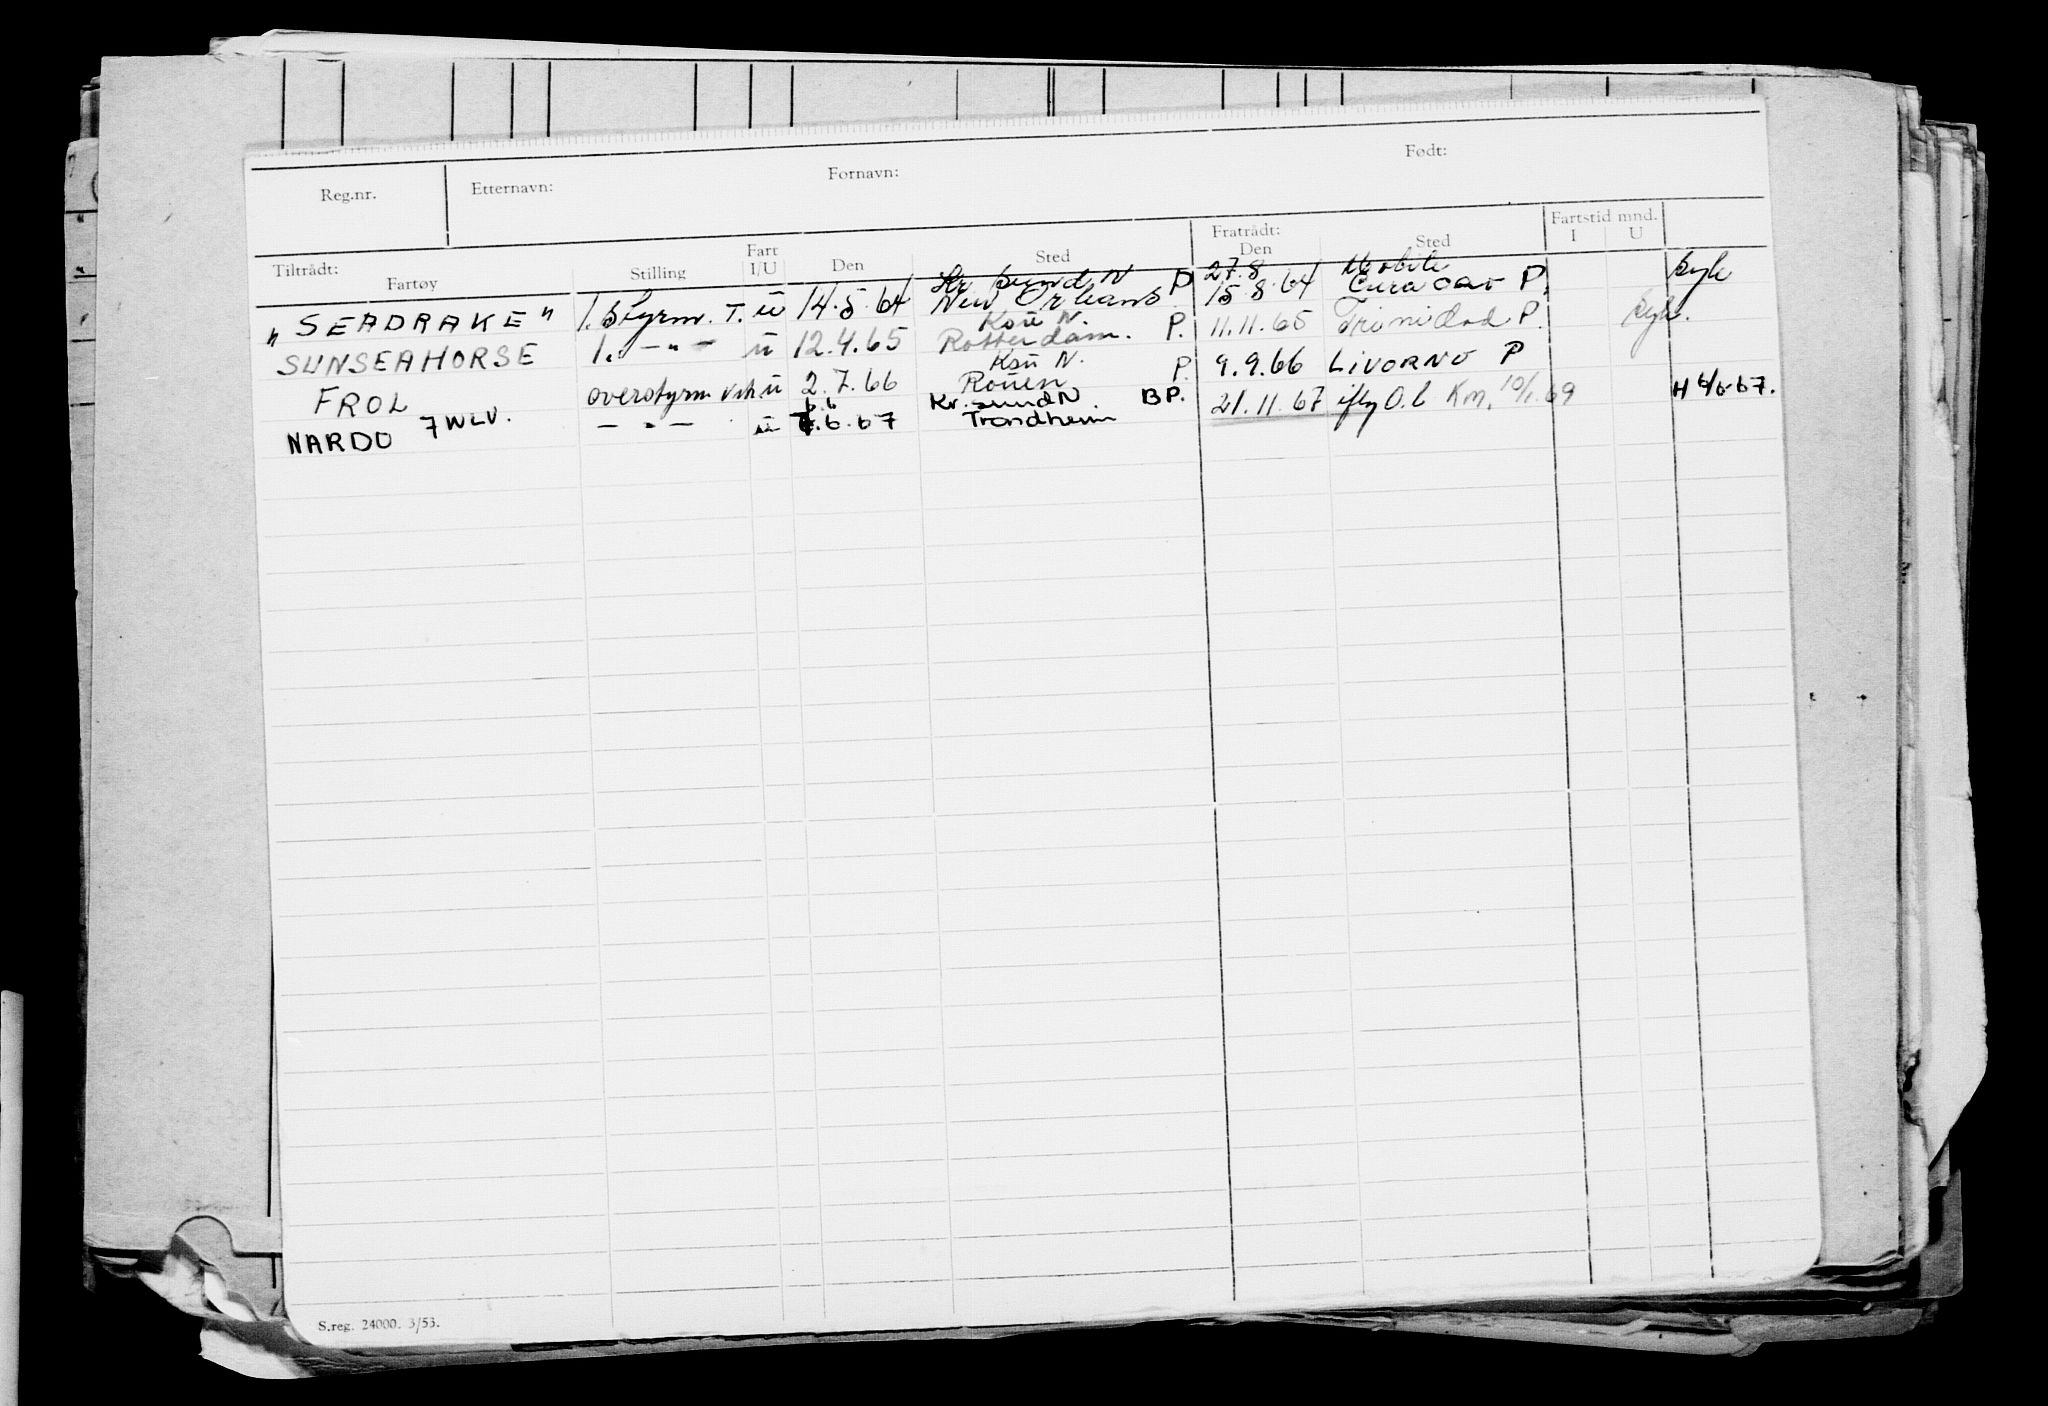 Reg.nr. Etternavn: Fornavn: Født:
Tiltrådt: Fratrådt: Fartstid mnd.
Fartøy Stilling Fart I/U Den Sted Den Sted I U
Kr. sund N 27.8 Mobile
"SEADRAKE" 1. styrm. T. ü 14.5.64 New Orleans P 15.8.64 Curacao P. syk
Ksü N.
SUNSEAHORSE 1. -"- ü 12.4.65 Rotterdam. P. 11.11.65 Trinidad P. syk.
Ksü N.
FROL overstyrm vik ü 2.7.66 Rouen P. 9.9.66 LIVORNO P
6.6 Kr.sund N
NARDO 7 WLV. - " - ü 6.67 Trondheim BP. 21.11.67 Km. 10/1.69 H 6/6-67.
S.reg. 24000. 3/53.